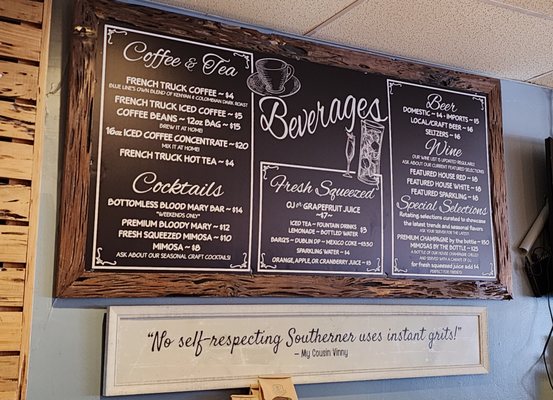 Coffee & Tea
FRENCH TRUCK COFFEE ~ $4
BLUE LINE'S OWN BLEND OF KENYAN & COLOMBIAN DARK ROAST
FRENCH TRUCK ICED COFFEE ~ $5
COFFEE BEANS ~ 12oz BAG ~ $15
BREW IT AT HOME!
16oz ICED COFFEE CONCENTRATE ~ $20
MIX IT AT HOME!
FRENCH TRUCK HOT TEA ~ $4
Cocktails
BOTTOMLESS BLOODY MARY BAR ~ $14
*WEEKENDS ONLY*
PREMIUM BLOODY MARY ~ $12
FRESH SQUEEZED MIMOSA ~ $10
MIMOSA ~ $8
ASK ABOUT OUR SEASONAL CRAFT COCKTAILS!
Beverages
Fresh Squeezed
OJ GRAPEFRUIT JUICE
~7~
ICED TEA ~ FOUNTAIN DRINKS
LEMONADE ~ BOTTLED WATER
BARQ'S ~ DUBLIN DP ~ MEXICO COKE ~3.50
SPARKLING WATER ~ 4
ORANGE, APPLE, OR CRANBERRY JUICE ~ 5
Beer
DOMESTIC ~ $4 - IMPORTS ~ $5
LOCAL/CRAFT BEER ~ $6
SELTZERS ~ $6
Wine
OUR WINE LIST IS UPDATED REGULARLY
ASK ABOUT OUR CURRENT FEATURED SELECTIONS
FEATURED HOUSE RED ~ $8
FEATURED HOUSE WHITE ~ $8
FEATURED SPARKLING ~ $8
Special Selections
Rotating selections curated to showcase
the latest trends and seasonal flavors
ASK YOUR SERVER FOR THE LATEST!
PREMIUM CHAMPAGNE by the bottle ~ 150
MIMOSAS BY THE BOTTLE ~ 125
A BOTTLE OF OUR HOUSE CHAMPAGNE CHILLED
AND SERVED WITH A CARAFE OF OJ
for fresh squeezed juice add $4
PERFECT FOR FRIENDS
"No self-respecting Southerner uses instant grits!"
– My Cousin Vinny